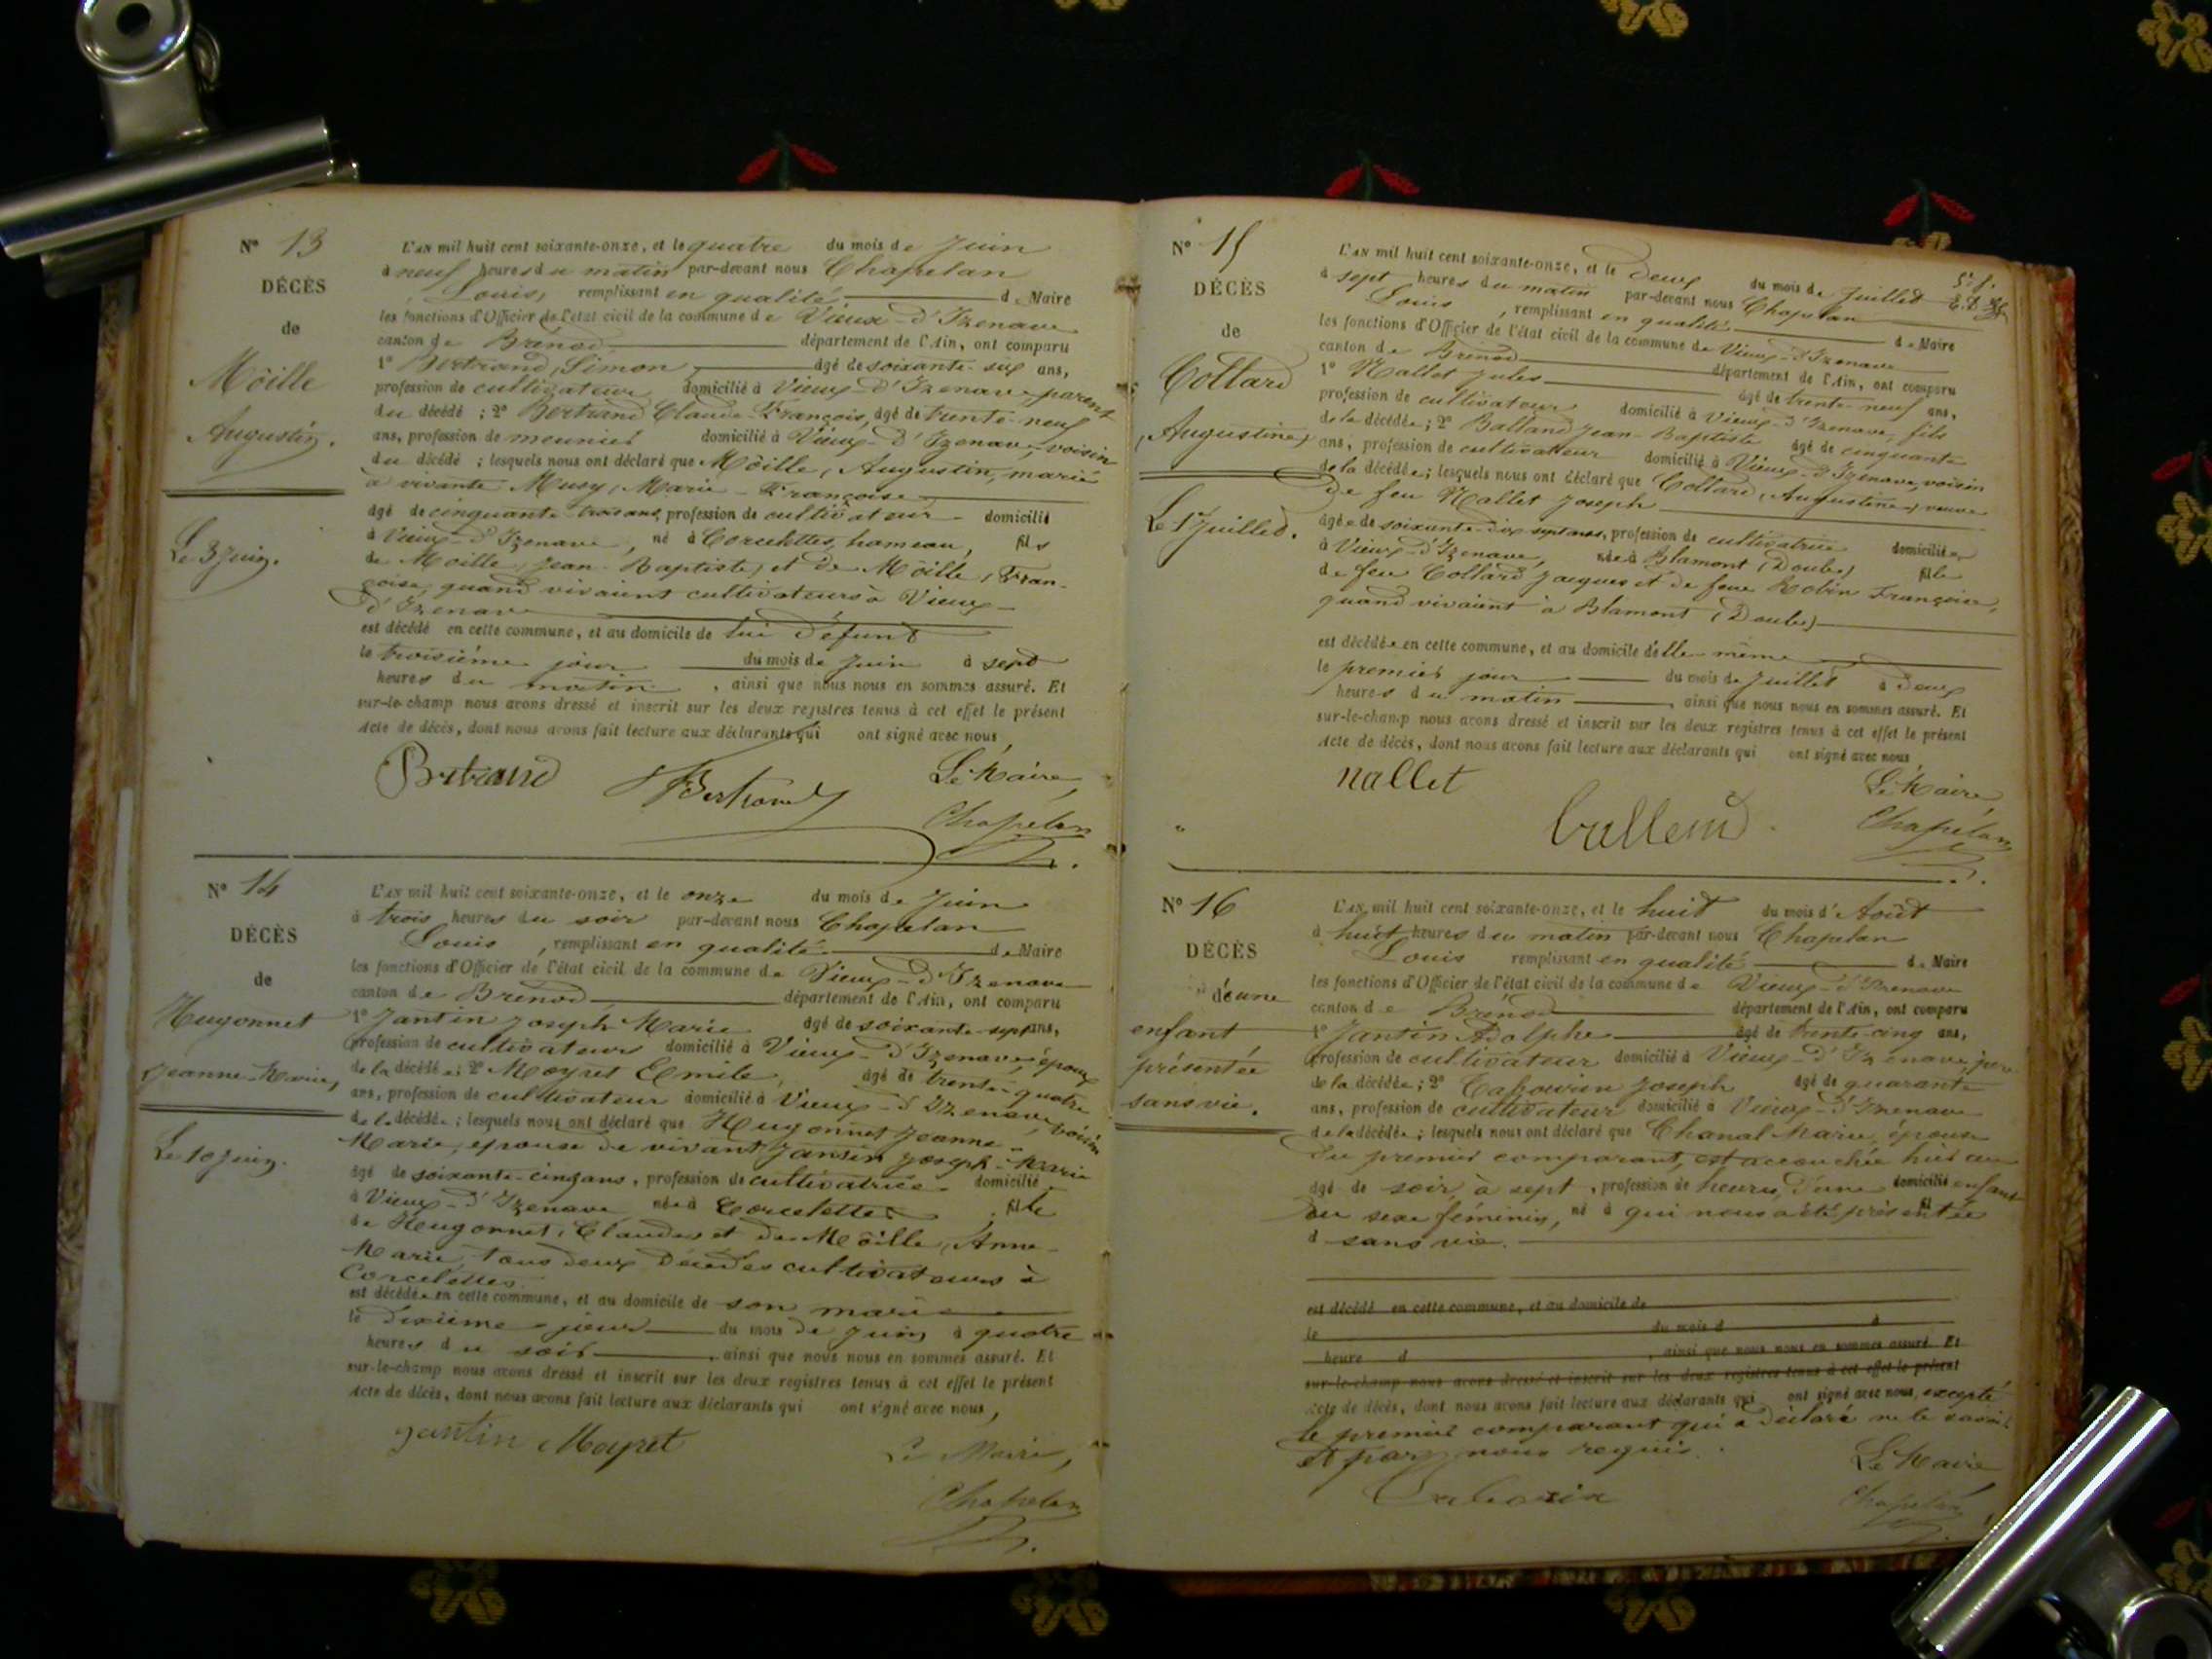 N° 13
DÉCÈS
de
Möille
Augustin.
Le 3 Juin.
L'AN mil huit cent soixante-onze, et le quatre du mois de Juin
à neuf heures du matin par-devant nous Chapelan
Louis, remplissant en qualité de Maire
les fonctions d'Officier de l'état civil de la commune de Vieux-d'Izenave
canton de Brénod département de l'Ain, ont comparu
1° Bertrand, Simon âgé de soixante-six ans,
profession de cultivateur domicilié à Vieux-d'Izenave, parent
du décédé ; 2° Bertrand Claude-François, âgé de trente-neuf
ans, profession de meunier domicilié à Vieux-d'Izenave, voisin
du décédé ; lesquels nous ont déclaré que Möille, Augustin, marié
à vivante Musy, Marie-Françoise
âgé de cinquante-trois ans, profession de cultivateur domicilié
à Vieux-d'Izenave, né à Corcelettes, hameau, fils
de Moille, Jean-Baptiste, et de Möille, Fran-
çoise, quand vivaient cultivateurs à Vieux-
d'Izenave
est décédé en cette commune, et au domicile de lui défunt
le troisième jour du mois de Juin à sept
heures du matin, ainsi que nous nous en sommes assuré. Et
sur-le-champ nous avons dressé et inscrit sur les deux registres tenus à cet effet le présent
Acte de décès, dont nous avons fait lecture aux déclarants qui ont signé avec nous
Bertrand Bertrand Le Maire,
Chapelan
N° 14
DÉCÈS
de
Hugonnet
Jeanne-Marie,
Le 10 Juin.
L'AN mil huit cent soixante-onze, et le onze du mois de Juin
à trois heures du soir par-devant nous Chapelan
Louis, remplissant en qualité de Maire
les fonctions d'Officier de l'état civil de la commune de Vieux-d'Izenave
canton de Brénod département de l'Ain, ont comparu
1° Jantin Joseph Marie âgé de soixante-sept ans,
profession de cultivateur domicilié à Vieux-d'Izenave, époux
de la décédée ; 2° Moyret Emile, âgé de trente-quatre
ans, profession de cultivateur domicilié à Vieux-d'Izenave, voisin
de la décédée ; lesquels nous ont déclaré que Hugonnet Jeanne-
Marie, épouse de vivant Jantin Joseph-Marie
âgé de soixante-cinq ans, profession de cultivatrice domicilié
à Vieux-d'Izenave née à Corcelettes, fille
de Hugonnet, Claude et de Möille, Anne-
Marie, tous deux décédés cultivateurs à
Corcelettes
est décédée en cette commune, et au domicile de son mari
le dixième jour du mois de Juin à quatre
heures du soir, ainsi que nous nous en sommes assuré. Et
sur-le-champ nous avons dressé et inscrit sur les deux registres tenus à cet effet le présent
Acte de décès, dont nous avons fait lecture aux déclarants qui ont signé avec nous,
jantin Moyret
Le Maire,
Chapelan
N° 15
DÉCÈS
de
Collard
Augustine,
Le 1er Juillet.
L'AN mil huit cent soixante-onze, et le deux du mois de Juillet
à sept heures du matin par-devant nous Chapelan
Louis, remplissant en qualité de Maire
les fonctions d'Officier de l'état civil de la commune de Vieux-d'Izenave
canton de Brénod département de l'Ain, ont comparu
1° Nallet Jules âgé de trente-neuf ans,
profession de cultivateur domicilié à Vieux-d'Izenave, fils
de la décédée ; 2° Balland Jean-Baptiste âgé de cinquante
ans, profession de cultivateur domicilié à Vieux-d'Izenave, voisin
de la décédée ; lesquels nous ont déclaré que Collard, Augustine, veuve
de feu Nallet Joseph
âgée de soixante-dix-sept ans, profession de cultivatrice domiciliée
à Vieux-d'Izenave, née à Blamont (Doubs) fille
de feu Collard Jacques et de feue Robin Françoise,
quand vivaient à Blamont (Doubs)
est décédée en cette commune, et au domicile d'elle même
le premier jour du mois de Juillet à deux
heures du matin, ainsi que nous nous en sommes assuré. Et
sur-le-champ nous avons dressé et inscrit sur les deux registres tenus à cet effet le présent
Acte de décès, dont nous avons fait lecture aux déclarants qui ont signé avec nous
nallet Le Maire
balland Chapelan
N° 16
DÉCÈS
d'une
enfant
présentée
sans vie.
L'AN mil huit cent soixante-onze, et le huit du mois d'Août
à huit heures du matin par-devant nous Chapelan
Louis remplissant en qualité de Maire
les fonctions d'Officier de l'état civil de la commune de Vieux-d'Izenave
canton de Brénod département de l'Ain, ont comparu
1° Jantin Adolphe âgé de trente-cinq ans,
profession de cultivateur domicilié à Vieux-d'Izenave, père
de la décédée ; 2° Joseph âgé de quarante
ans, profession de cultivateur domicilié à Vieux-d'Izenave
de la décédée ; lesquels nous ont déclaré que Chanal Marie, épouse
du premier comparant, est accouchée hier au
âgé de soir, à sept, profession de heures, d'une domicilié enfant
du sexe féminin, né à qui nous a été présentée
d sans vie.
est décédé en cette commune, et au domicile de
le du mois d à
heure d , ainsi que nous nous en sommes assuré. Et
sur-le-champ nous avons dressé et inscrit sur les deux registres tenus à cet effet le présent
Acte de décès, dont nous avons fait lecture aux déclarants qui ont signé avec nous, excepté
le premier comparant qui a déclaré ne le savoir
et par nous requis.
Le Maire
Chapelan